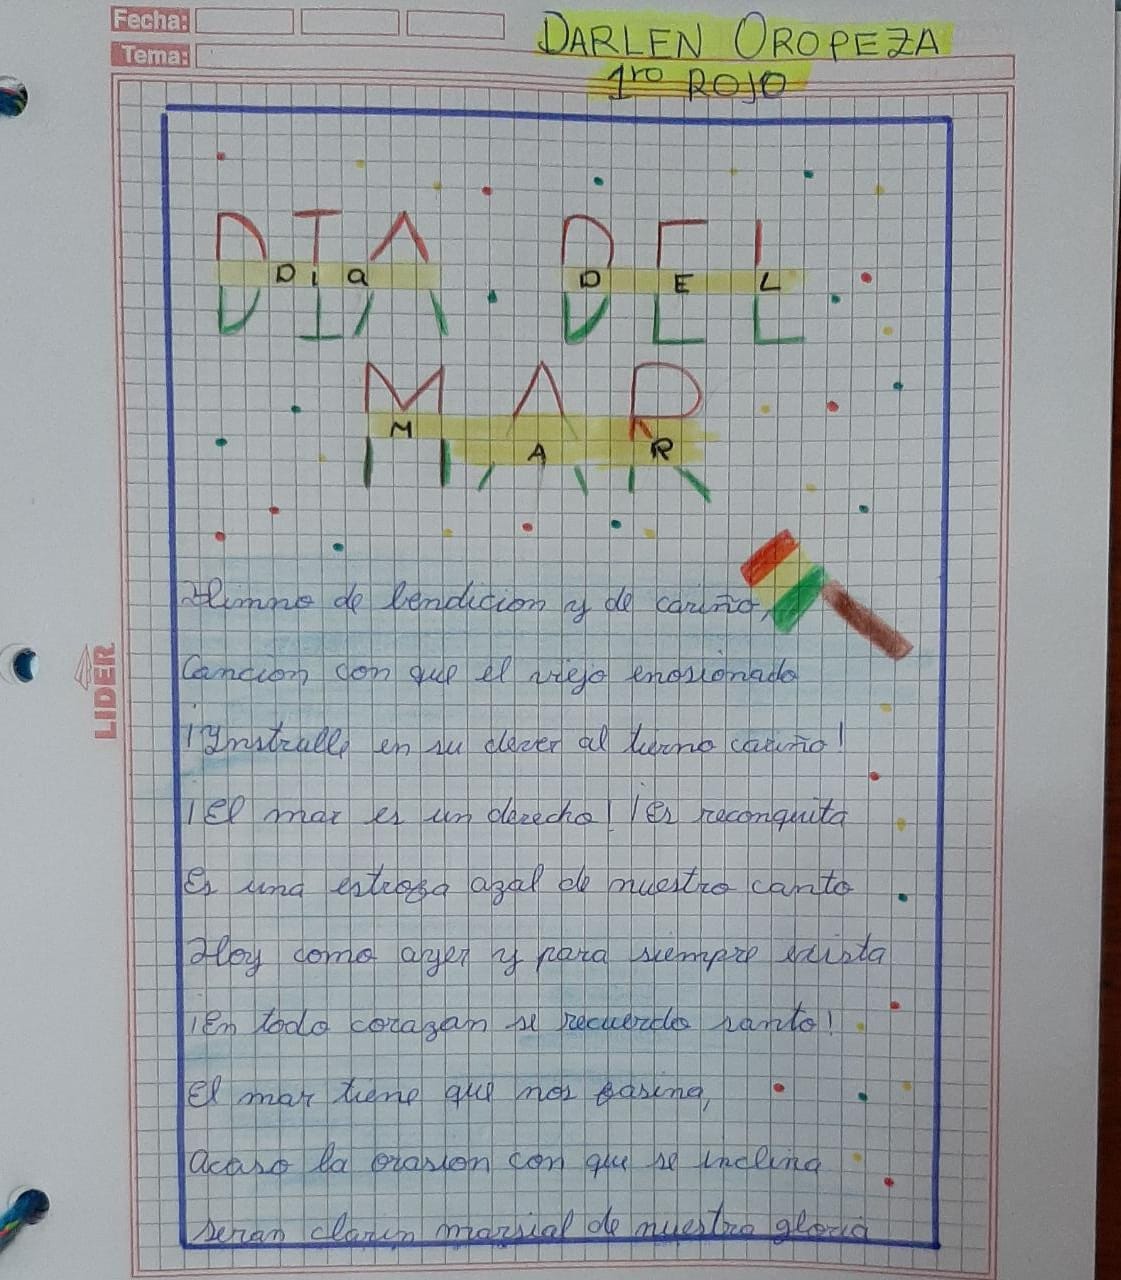 Fecha:
Tema:
DARLEN OROPEZA
1ro ROJO
DIA DEL
DIa DEL
MAR
MAR
LIDER
Himno de bendicion y de cariño,
Cancion con que el viejo enosionado
en su dever al tierno cariño!
¡El mar es un derecho! ¡Es reconquita
Es una estroza azal de nuestro canto
Hoy como ayer y para siempre exista
¡En todo corazan se recuerdo santo!
El mar tiene que nos
acaso la orasion con que se inclina
seran clarin marsial de nuestra gloria